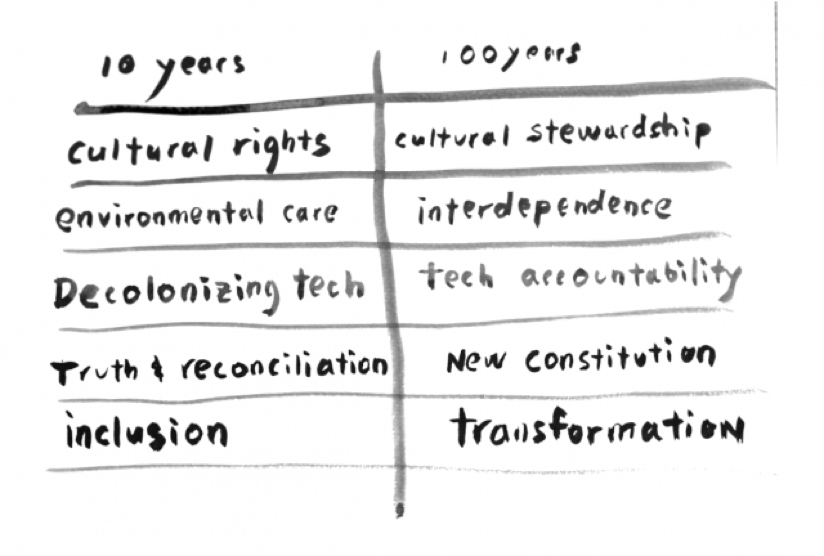 10 years 100 years
cultural rights cultural stewardship
environmental care interdependence
Decolonizing tech tech accountability
Truth & reconciliation New constitution
inclusion transformation